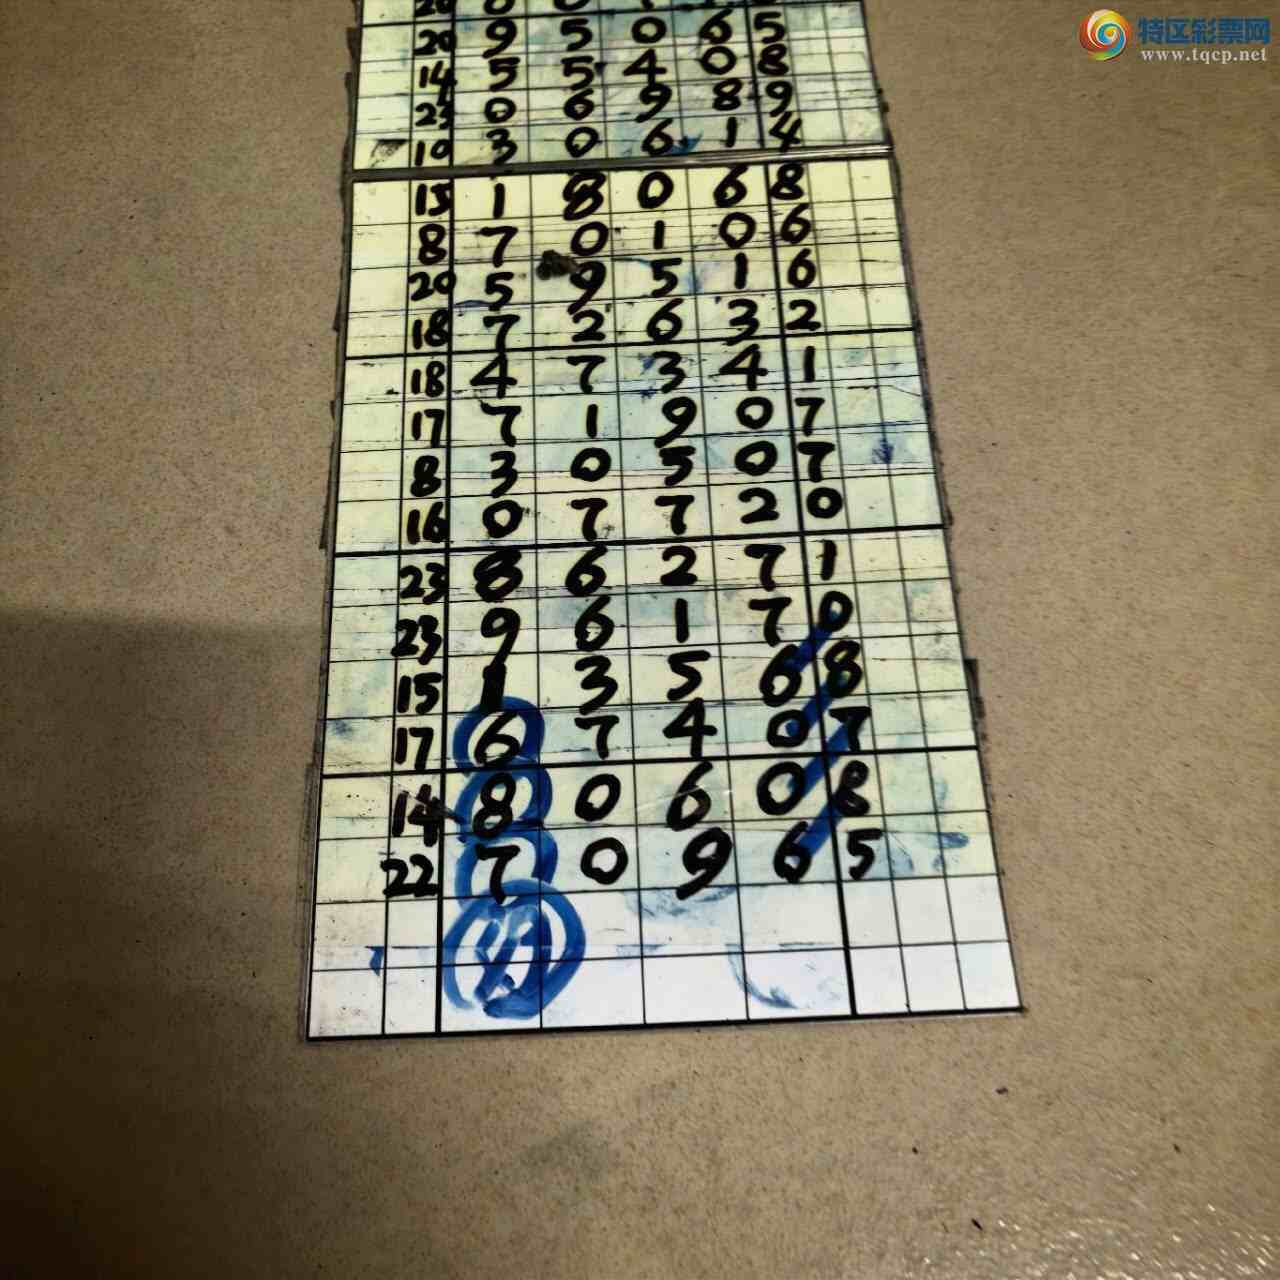 特区彩票网
www.tqcp.net
20 9 5 0 6 5
14 5 5 4 0 8
23 0 6 9 8 9
10 3 0 6 1 4
15 1 8 0 6 8
8 7 0 1 0 6
20 5 9 5 1 6
18 7 2 6 3 2
18 4 7 3 4 1
17 7 1 9 0 7
8 3 0 5 0 7
16 0 7 7 2 0
23 8 6 2 7 1
23 9 6 1 7 0
15 1 3 5 6 8
17 6 7 4 0 7
14 8 0 6 0 8
22 7 0 9 6 5